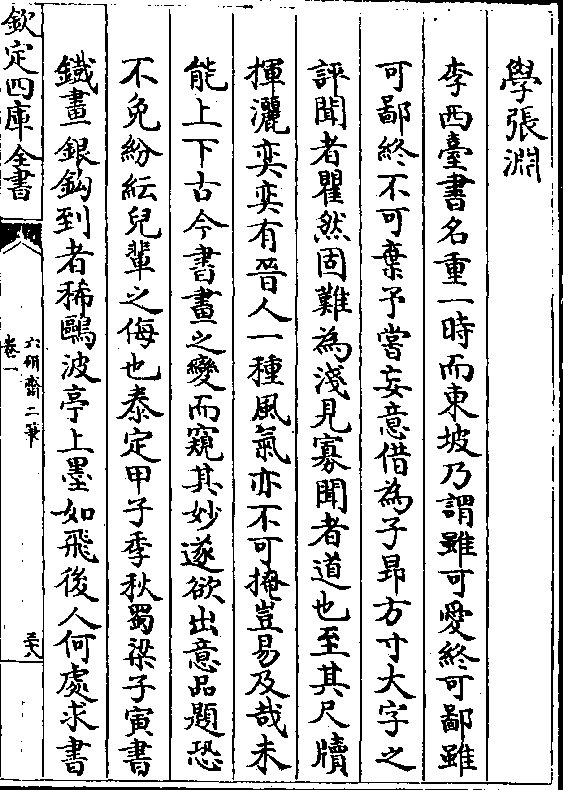 學張淵
李西臺書名重一時而東坡乃謂雖可愛終可鄙雖
可鄙終不可棄予嘗妄意借為子昻方寸大字之
評聞者瞿然固難為淺見寡聞者道也至其尺牘
揮灑奕奕有晉人一種風氣亦不可掩豈易及哉未
能上下古今書畫之變而窺其妙遂欲出意品題恐
不免紛紜兒輩之侮也泰定甲子季秋蜀梁子寅書
鐵畫銀鈎到者稀鷗波亭上墨如飛後人何處求書
欽定四庫全書
六研齋二筆
卷一
三六